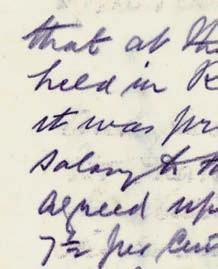 that at th
held in R
it was pr
Salary to t
agreed up
7½ per Cent